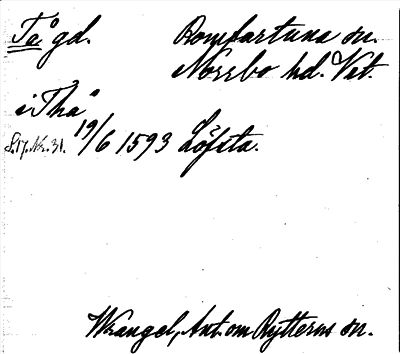 Tå gd. Romfartuna sn.
Norrbo hd. Vst.
i Thå
S. 17. Nr. 31. 19/6 1593 Löfsta.
Wrangel, Ant. om Rytterns sn.